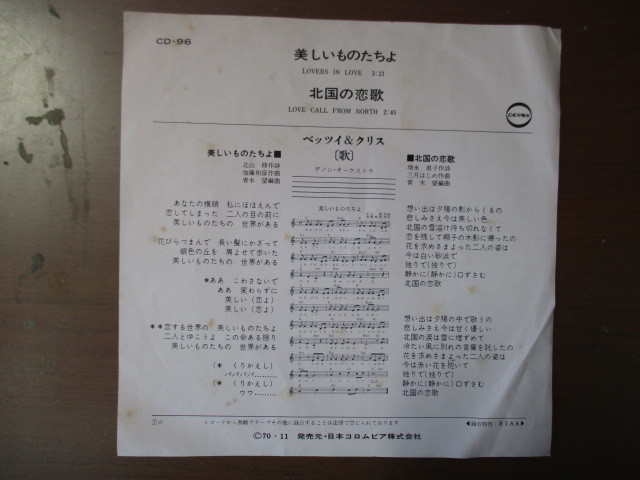 CD-96
美しいものたちよ
LOVERS IN LOVE 3:21
北国の恋歌
LOVE CALL FROM NORTH 2:45
DENON
ベッツイ&クリス
〔歌〕
デノン・オーケストラ
美しいものたちよ■
北山 修作詩
加藤和彦作曲
青木 望編曲
あなたの横顔 私にほほえんで
恋してしまった 二人の目の前に
美しいものたちの 世界がある
花びらつまんで 長い髪にかざって
銀色の丘を 肩よせて歩いた
美しいものたちの 世界がある
*ああ こわさないで
ああ 変わらずに
美しい (恋よ)
美しい (恋よ)
**恋する世界の 美しいものたちよ
二人とゆこうよ この命ある限り
美しいものたちの 世界がある
(* くりかえし)
パパパパ………
(* くりかえし)
ウウ………
美しいものたちよ
■北国の恋歌
三月はじめ作曲
青木 望編曲
想い出は夕陽の影からくるの
悲しみさえ今は美しい色
北国の雪溶け待ち切れなくて
恋を残して椰子の木影に帰ったの
花を求めさまよった二人の姿は
今は白い砂浜で
独りで(独りで)
静かに(静かに)口ずさむ
北国の恋歌
想い出は夕陽の中で歌うの
悲しみさえ今は甘く優しい
北国の涙は雪に埋ずめて
冷たい風に別れの言葉を託したの
花を求めさまよった二人の姿は
今は赤い花を抱いて
独りで(独りで)
静かに(静かに)口ずさむ
北国の恋歌
レコードから無断でテープその他に録音することは法律で禁じられております
◀録音特性:RIAA▶
Ⓒ70・11 発売元・日本コロムビア株式会社